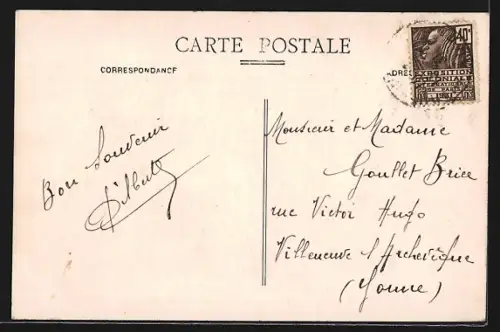 CARTE POSTALE
CORRESPONDANCE
40
EXPOSITION
COLONIALE
INTERNATIONALE
DE PARIS
1931
Bon Souvenir
Monsieur et Madame
Goullet Brice
rue Victor Hugo
Villeneuve l'Archevêque
(Yonne)